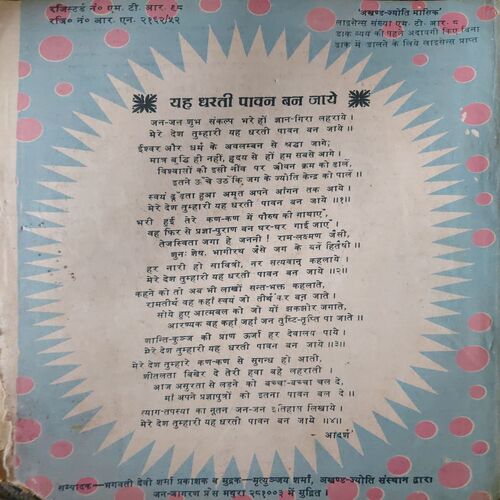 रजिस्टर्ड नं० एम. टी. आर. ६८
रजि० नं० आर. एन. २१६२/५२
'अखण्ड-ज्योति मासिक'
लाइसेन्स संख्या एम. टी. आर. ८
डाक व्यय की पहले अदायगी किए बिना
डाक में डालने के लिये लाइसेन्स प्राप्त
यह धरती पावन बन जाये
जन-जन शुभ संकल्प भरे हों ज्ञान-गिरा लहराये ।
मेरे देश तुम्हारी यह धरती पावन बन जाये ॥
ईश्वर और धर्म के अवलम्बन से श्रद्धा जागे;
मात्र बुद्धि हो नहीं, हृदय से हों हम सबसे आगे ।
विश्वासों को इसी नींव पर जीवन क्रम को ढालें,
इतने ऊँचे उठें कि जग के ज्योति केन्द्र को पालें ॥
स्वयं ढूँढ़ता हुआ अमृत अपने आँगन तक आये ।
मेरे देश तुम्हारी यह धरती पावन बन जाये ॥१॥
भरी हुई तेरे कण-कण में पौरुष की गाथाएं,
वह फिर से प्रज्ञा-पुराण बन घर-घर गाई जाएं ।
तेजस्विता जगा हे जननी ! राम-लक्ष्मण जैसी,
शुनः शेष, भागीरथ जैसे जग के बनें हितैषी ॥
हर नारी हो सावित्री, नर सत्यवान् कहलाये ।
मेरे देश तुम्हारी यह धरती पावन बन जाये ॥२॥
कहने को तो अब भी लाखों सन्त-भक्त कहलाते,
रामतीर्थ वह कहाँ स्वयं जो तीर्थंकर बन जाते ।
सोये हुए आत्मबल को जो यों झकझोर जगाते,
आरण्यक वह कहाँ जहाँ जन तुष्टि-तृप्ति पा जाते ॥
शान्ति-कुञ्ज की प्राण ऊर्जा हर देवालय पाये ।
मेरे देश तुम्हारी यह धरती पावन बन जाये ॥३॥
मेरे देश तुम्हारे कण-कण से सुगन्ध हो आती,
शीतलता बिखेर दे तेरी हवा बहे लहराती ।
आज असुरता से लड़ने को बच्चा-बच्चा चल दे,
माँ अपने प्रज्ञापुत्रों को इतना पावन बल दे ॥
त्याग-तपस्या का नूतन जन-जन इतिहास लिखाये ।
मेरे देश तुम्हारी यह धरती पावन बन जाये ॥४॥
- आदर्श
सम्पादक—भगवती देवी शर्मा प्रकाशक व मुद्रक—मृत्युञ्जय शर्मा, अखण्ड-ज्योति संस्थान द्वारा
जन-जागरण प्रेस मथुरा २८१००३ में मुद्रित ।